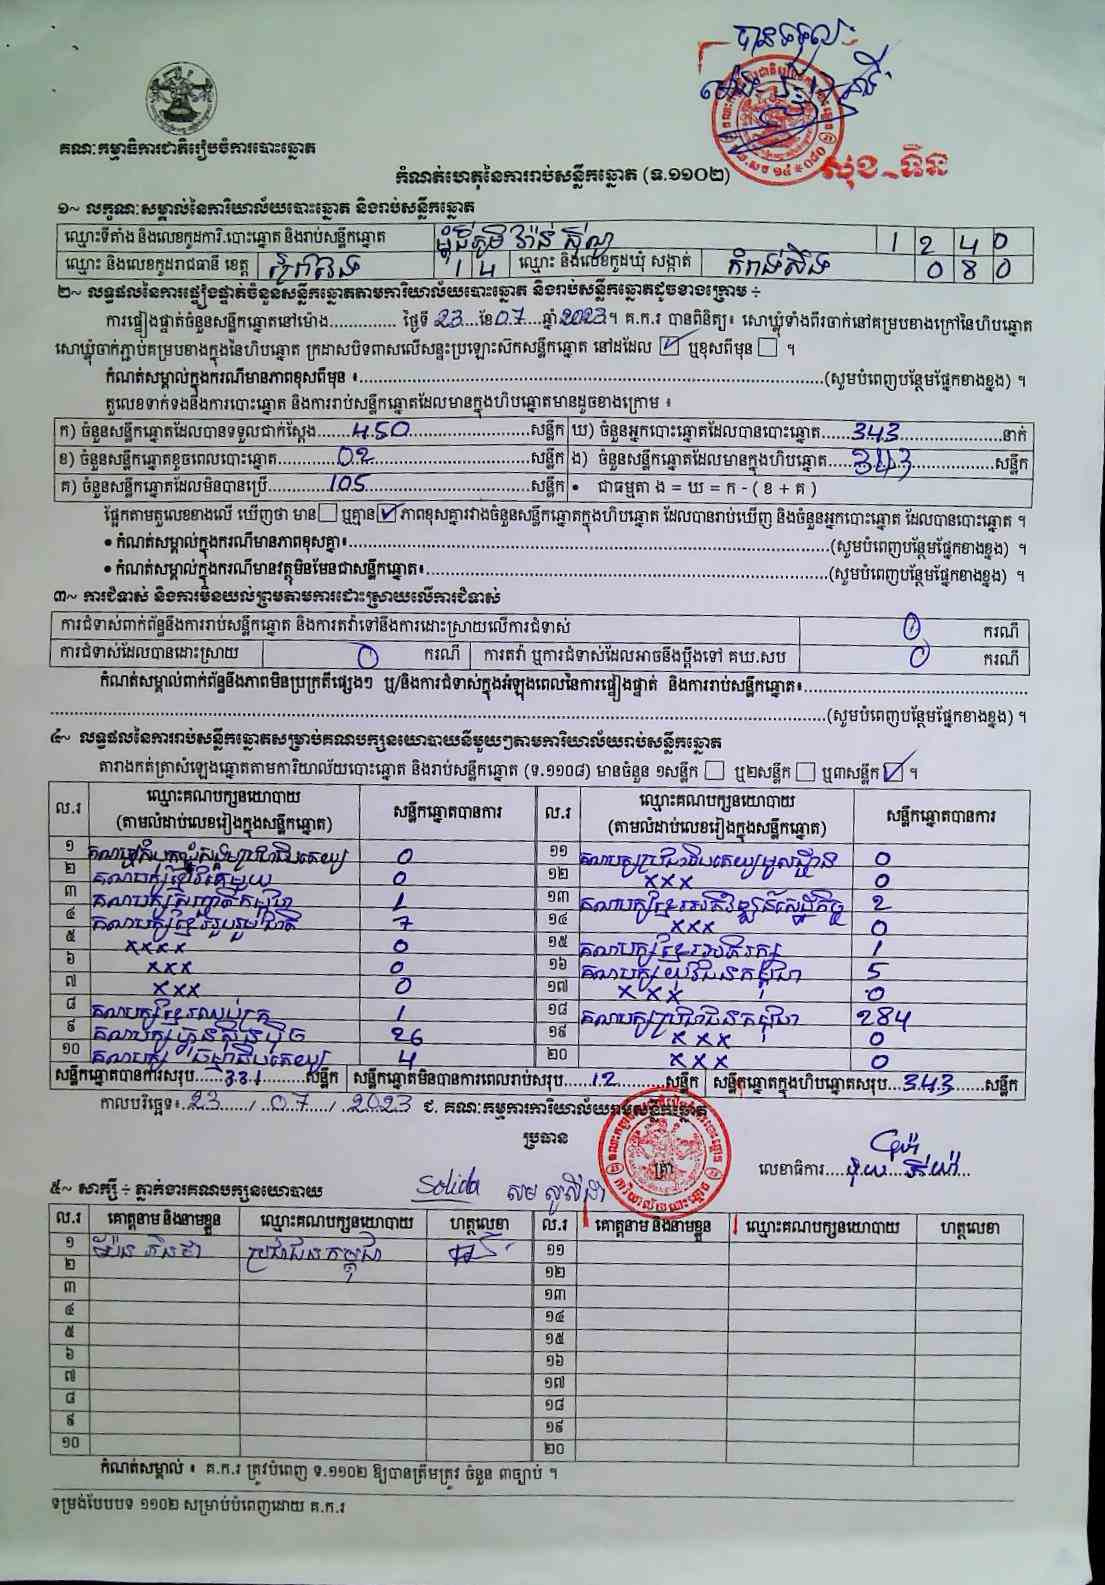 បានទទួល
សុខ ធីន
គណៈកម្មាធិការជាតិរៀបចំការបោះឆ្នោត
កំណត់ហេតុនៃការរាប់សន្លឹកឆ្នោត (ទ.១១០២)
១~ លក្ខណៈសម្គាល់នៃការិយាល័យបោះឆ្នោត និងរាប់សន្លឹកឆ្នោត
ឈ្មោះទីតាំង និងលេខកូដការិ.បោះឆ្នោត និងរាប់សន្លឹកឆ្នោត 1 2 4 0
ឈ្មោះ និងលេខកូដរាជធានី ខេត្ត ព្រៃវែង 1 4 ឈ្មោះ និងលេខកូដឃុំ សង្កាត់ កំពង់សឹង 0 8 0
២~ លទ្ធផលនៃការផ្ទៀងផ្ទាត់ចំនួនសន្លឹកឆ្នោតតាមការិយាល័យបោះឆ្នោត និងរាប់សន្លឹកឆ្នោតដូចខាងក្រោម ÷
ការផ្ទៀងផ្ទាត់ចំនួនសន្លឹកឆ្នោតនៅម៉ោង.............. ថ្ងៃទី 23 ខែ 07 ឆ្នាំ 2023 ។ គ.ក.រ បានពិនិត្យ៖ សោឃ្លុំទាំងពីរចាក់នៅគម្របខាងក្រៅនៃហិបឆ្នោត
សោឃ្លុំចាក់ភ្ជាប់គម្របខាងក្នុងនៃហិបឆ្នោត ក្រដាសបិទពាសលើសន្ទះប្រឡោះស៊កសន្លឹកឆ្នោត នៅដដែល ☑ ឬខុសពីមុន ☐ ។
កំណត់សម្គាល់ក្នុងករណីមានភាពខុសពីមុន ៖...............(សូមបំពេញបន្ថែមផ្នែកខាងខ្នង) ។
តួលេខទាក់ទងនឹងការបោះឆ្នោត និងការរាប់សន្លឹកឆ្នោតដែលមានក្នុងហិបឆ្នោតមានដូចខាងក្រោម ៖
ក) ចំនួនសន្លឹកឆ្នោតដែលបានទទួលជាក់ស្តែង 450 សន្លឹក ឃ) ចំនួនអ្នកបោះឆ្នោតដែលបានបោះឆ្នោត 343 នាក់
ខ) ចំនួនសន្លឹកឆ្នោតខូចពេលបោះឆ្នោត 02 សន្លឹក ង) ចំនួនសន្លឹកឆ្នោតដែលមានក្នុងហិបឆ្នោត 343 សន្លឹក
គ) ចំនួនសន្លឹកឆ្នោតដែលមិនបានប្រើ 105 សន្លឹក • ជាធម្មតា ង = ឃ = ក - ( ខ + គ )
ផ្អែកតាមតួលេខខាងលើ ឃើញថា មាន ☐ ឬគ្មាន ☑ ភាពខុសគ្នារវាងចំនួនសន្លឹកឆ្នោតក្នុងហិបឆ្នោត ដែលបានរាប់ឃើញ និងចំនួនអ្នកបោះឆ្នោត ដែលបានបោះឆ្នោត ។
• កំណត់សម្គាល់ក្នុងករណីមានភាពខុសគ្នា៖...............(សូមបំពេញបន្ថែមផ្នែកខាងខ្នង) ។
• កំណត់សម្គាល់ក្នុងករណីមានវត្ថុមិនមែនជាសន្លឹកឆ្នោត៖...............(សូមបំពេញបន្ថែមផ្នែកខាងខ្នង) ។
៣~ ការជំទាស់ និងការមិនយល់ព្រមតាមការដោះស្រាយលើការជំទាស់
ការជំទាស់ពាក់ព័ន្ធនឹងការរាប់សន្លឹកឆ្នោត និងការតវ៉ាទៅនឹងការដោះស្រាយលើការជំទាស់ 0 ករណី
ការជំទាស់ដែលបានដោះស្រាយ 0 ករណី ការតវ៉ា ឬការជំទាស់ដែលអាចនឹងប្តឹងទៅ គឃ.សប 0 ករណី
កំណត់សម្គាល់ពាក់ព័ន្ធនឹងភាពមិនប្រក្រតីផ្សេងៗ ឬ/និងការជំទាស់ក្នុងអំឡុងពេលនៃការផ្ទៀងផ្ទាត់ និងការរាប់សន្លឹកឆ្នោត៖...............
...............(សូមបំពេញបន្ថែមផ្នែកខាងខ្នង) ។
៤~ លទ្ធផលនៃការរាប់សន្លឹកឆ្នោតសម្រាប់គណបក្សនយោបាយនីមួយៗតាមការិយាល័យរាប់សន្លឹកឆ្នោត
តារាងកត់ត្រាសំឡេងឆ្នោតតាមការិយាល័យបោះឆ្នោត និងរាប់សន្លឹកឆ្នោត (ទ.១១០៨) មានចំនួន ១សន្លឹក ☐ ឬ២សន្លឹក ☐ ឬ៣សន្លឹក ☑ ។
ល.រ ឈ្មោះគណបក្សនយោបាយ (តាមលំដាប់លេខរៀងក្នុងសន្លឹកឆ្នោត) សន្លឹកឆ្នោតបានការ ល.រ ឈ្មោះគណបក្សនយោបាយ (តាមលំដាប់លេខរៀងក្នុងសន្លឹកឆ្នោត) សន្លឹកឆ្នោតបានការ
១ 0 ១១ គណបក្សប្រជាធិបតេយ្យមូលដ្ឋាន 0
២ គណបក្សខ្មែរតែមួយ 0 ១២ xxx 0
៣ 1 ១៣ គណបក្សខ្មែរអភិវឌ្ឍន៍សេដ្ឋកិច្ច 2
៤ គណបក្សខ្មែររួបរួមជាតិ 7 ១៤ xxx 0
៥ xxxx 0 ១៥ គណបក្សខ្មែរអភិរក្ស 1
៦ xxx 0 ១៦ គណបក្សយុវជនកម្ពុជា 5
៧ xxx 0 ១៧ xxx 0
៨ គណបក្សខ្មែរឈប់ក្រ 1 ១៨ គណបក្សប្រជាជនកម្ពុជា 284
៩ គណបក្សហ្វ៊ុនស៊ិនប៉ិច 26 ១៩ xxx 0
១០ គណបក្ស ធម្មាធិបតេយ្យ 4 ២០ xxx 0
សន្លឹកឆ្នោតបានការសរុប 331 សន្លឹក សន្លឹកឆ្នោតមិនបានការពេលរាប់សរុប 12 សន្លឹក សន្លឹកឆ្នោតក្នុងហិបឆ្នោតសរុប 343 សន្លឹក
កាលបរិច្ឆេទ៖ 23 / 07 / 2023 ជ. គណៈកម្មការការិយាល័យរាប់សន្លឹកឆ្នោត
ប្រធាន
លេខាធិការ
Solida
៥~ សាក្សី ÷ ភ្នាក់ងារគណបក្សនយោបាយ
ល.រ គោត្តនាម និងនាមខ្លួន ឈ្មោះគណបក្សនយោបាយ ហត្ថលេខា ល.រ គោត្តនាម និងនាមខ្លួន ឈ្មោះគណបក្សនយោបាយ ហត្ថលេខា
១ ប្រជាជនកម្ពុជា ១១
២ ១២
៣ ១៣
៤ ១៤
៥ ១៥
៦ ១៦
៧ ១៧
៨ ១៨
៩ ១៩
១០ ២០
កំណត់សម្គាល់ ៖ គ.ក.រ ត្រូវបំពេញ ទ.១១០២ ឱ្យបានត្រឹមត្រូវ ចំនួន ៣ច្បាប់ ។
ទម្រង់បែបបទ ១១០២ សម្រាប់បំពេញដោយ គ.ក.រ